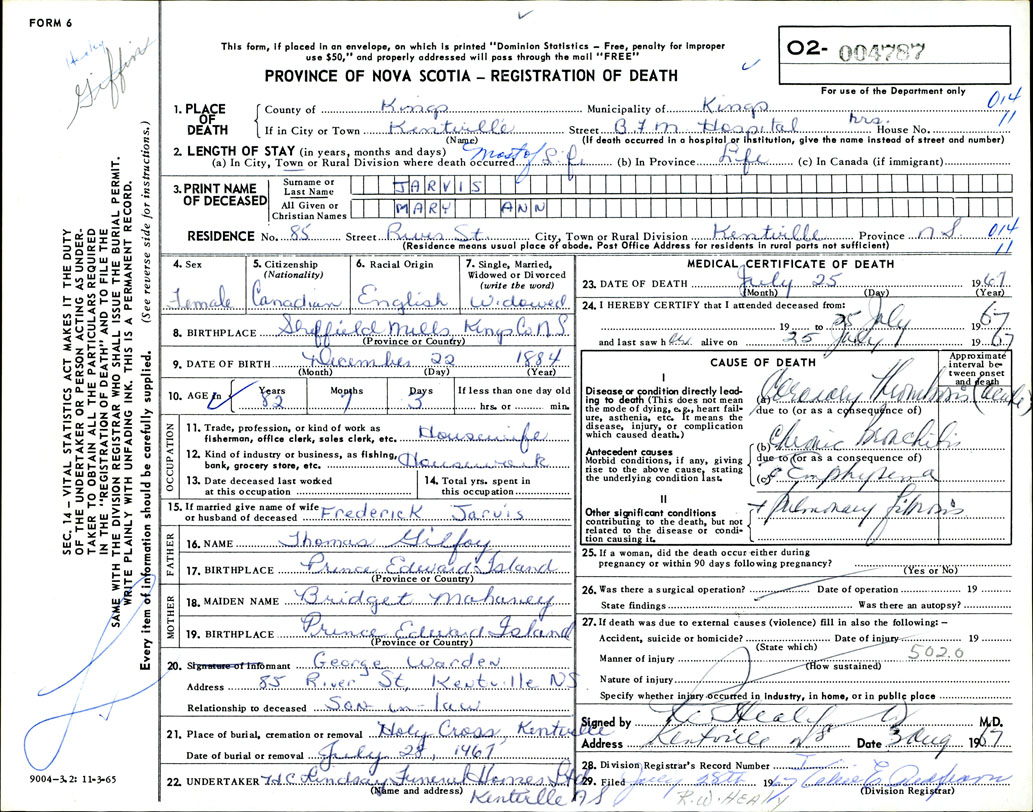 FORM 6
Giffin
This form, if placed in an envelope, on which is printed "Dominion Statistics – Free, penalty for improper
use $50," and properly addressed will pass through the mail "FREE"
PROVINCE OF NOVA SCOTIA – REGISTRATION OF DEATH
O2- 004787
For use of the Department only
014
11
1. PLACE OF DEATH
County of Kings Municipality of Kings
If in City or Town Kentville Street B.F.M. Hospital hrs. House No.
(Name) (If death occurred in a hospital or institution, give the name instead of street and number)
2. LENGTH OF STAY (in years, months and days)
(a) In City, Town or Rural Division where death occurred Most of Life (b) In Province Life (c) In Canada (if immigrant)
3. PRINT NAME OF DECEASED
Surname or Last Name JARVIS
All Given or Christian Names MARY ANN
RESIDENCE No. 85 Street River St. City, Town or Rural Division Kentville Province N S
014
11
(Residence means usual place of abode. Post Office Address for residents in rural parts not sufficient)
4. Sex Female
5. Citizenship (Nationality) Canadian
6. Racial Origin English
7. Single, Married, Widowed or Divorced (write the word) Widowed
8. BIRTHPLACE Sheffield Mills, Kings Co N.S.
(Province or Country)
9. DATE OF BIRTH December 22 1884
(Month) (Day) (Year)
10. AGE in Years 82 Months 7 Days 3 If less than one day old hrs. or min.
OCCUPATION
11. Trade, profession, or kind of work as fisherman, office clerk, sales clerk, etc. Housewife
12. Kind of industry or business, as fishing, bank, grocery store, etc. Housework
13. Date deceased last worked at this occupation
14. Total yrs. spent in this occupation
15. If married give name of wife or husband of deceased Frederick Jarvis
FATHER
16. NAME Thomas Gilfoy
17. BIRTHPLACE Prince Edward Island
(Province or Country)
MOTHER
18. MAIDEN NAME Bridget Mahaney
19. BIRTHPLACE Prince Edward Island
(Province or Country)
20. Signature of Informant George Warden
Address 85 River St, Kentville NS
Relationship to deceased Son in-law
21. Place of burial, cremation or removal Holy Cross, Kentville
Date of burial or removal July 28, 1967
22. UNDERTAKER T.H.C. Lindsay Funeral Homes Ltd
(Name and address) Kentville NS
MEDICAL CERTIFICATE OF DEATH
23. DATE OF DEATH July 25 1967
(Month) (Day) (Year)
24. I HEREBY CERTIFY that I attended deceased from:
19 to 25 July 67
and last saw her alive on 25 July 1967
CAUSE OF DEATH
Approximate interval between onset and death
I
Disease or condition directly leading to death (This does not mean the mode of dying, e.g., heart failure, asthenia, etc. It means the disease, injury, or complication which caused death.)
(a) Coronary Thrombosis (acute)
due to (or as a consequence of)
Antecedent causes
Morbid conditions, if any, giving rise to the above cause, stating the underlying condition last.
(b) Chronic Bronchitis
due to (or as a consequence of)
(c) Emphysema
II
Other significant conditions
contributing to the death, but not related to the disease or condition causing it.
+ Pulmonary fibrosis
25. If a woman, did the death occur either during pregnancy or within 90 days following pregnancy?
(Yes or No)
26. Was there a surgical operation? Date of operation 19
State findings Was there an autopsy?
27. If death was due to external causes (violence) fill in also the following: –
Accident, suicide or homicide? Date of injury 19
(State which)
502.0
Manner of injury
(How sustained)
Nature of injury
Specify whether injury occurred in industry, in home, or in public place
Signed by Healy M.D.
Address Kentville NS Date 3 Aug 1967
28. Division Registrar's Record Number
29. Filed July 28th 1967
(Division Registrar)
R.W. HEALY
SEC. 14 – VITAL STATISTICS ACT MAKES IT THE DUTY
OF THE UNDERTAKER OR PERSON ACTING AS UNDER-
TAKER TO OBTAIN ALL THE PARTICULARS REQUIRED
IN THE "REGISTRATION OF DEATH" AND TO FILE THE
SAME WITH THE DIVISION REGISTRAR WHO SHALL ISSUE THE BURIAL PERMIT.
WRITE PLAINLY WITH UNFADING INK. THIS IS A PERMANENT RECORD.
Every item of information should be carefully supplied. (See reverse side for instructions.)
9004-3.2: 11-3-65